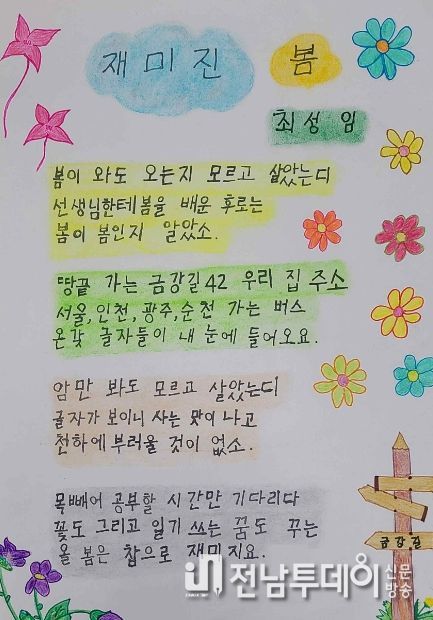 재미진 봄
최성임
봄이 와도 오는지 모르고 살았는디
선생님한테 봄을 배운 후로는
봄이 봄인지 알았소.
땅끝 가는 금강길42 우리 집 주소
서울,인천,광주,순천 가는 버스
온갖 글자들이 내 눈에 들어오요.
암만 봐도 모르고 살았는디
글자가 보이니 사는 맛이 나고
천하에 부러울 것이 없소.
목빼어 공부할 시간만 기다리다
꽃도 그리고 일기 쓰는 꿈도 꾸는
올 봄은 참으로 재미지요.
금강길
전남투데이 신문방송